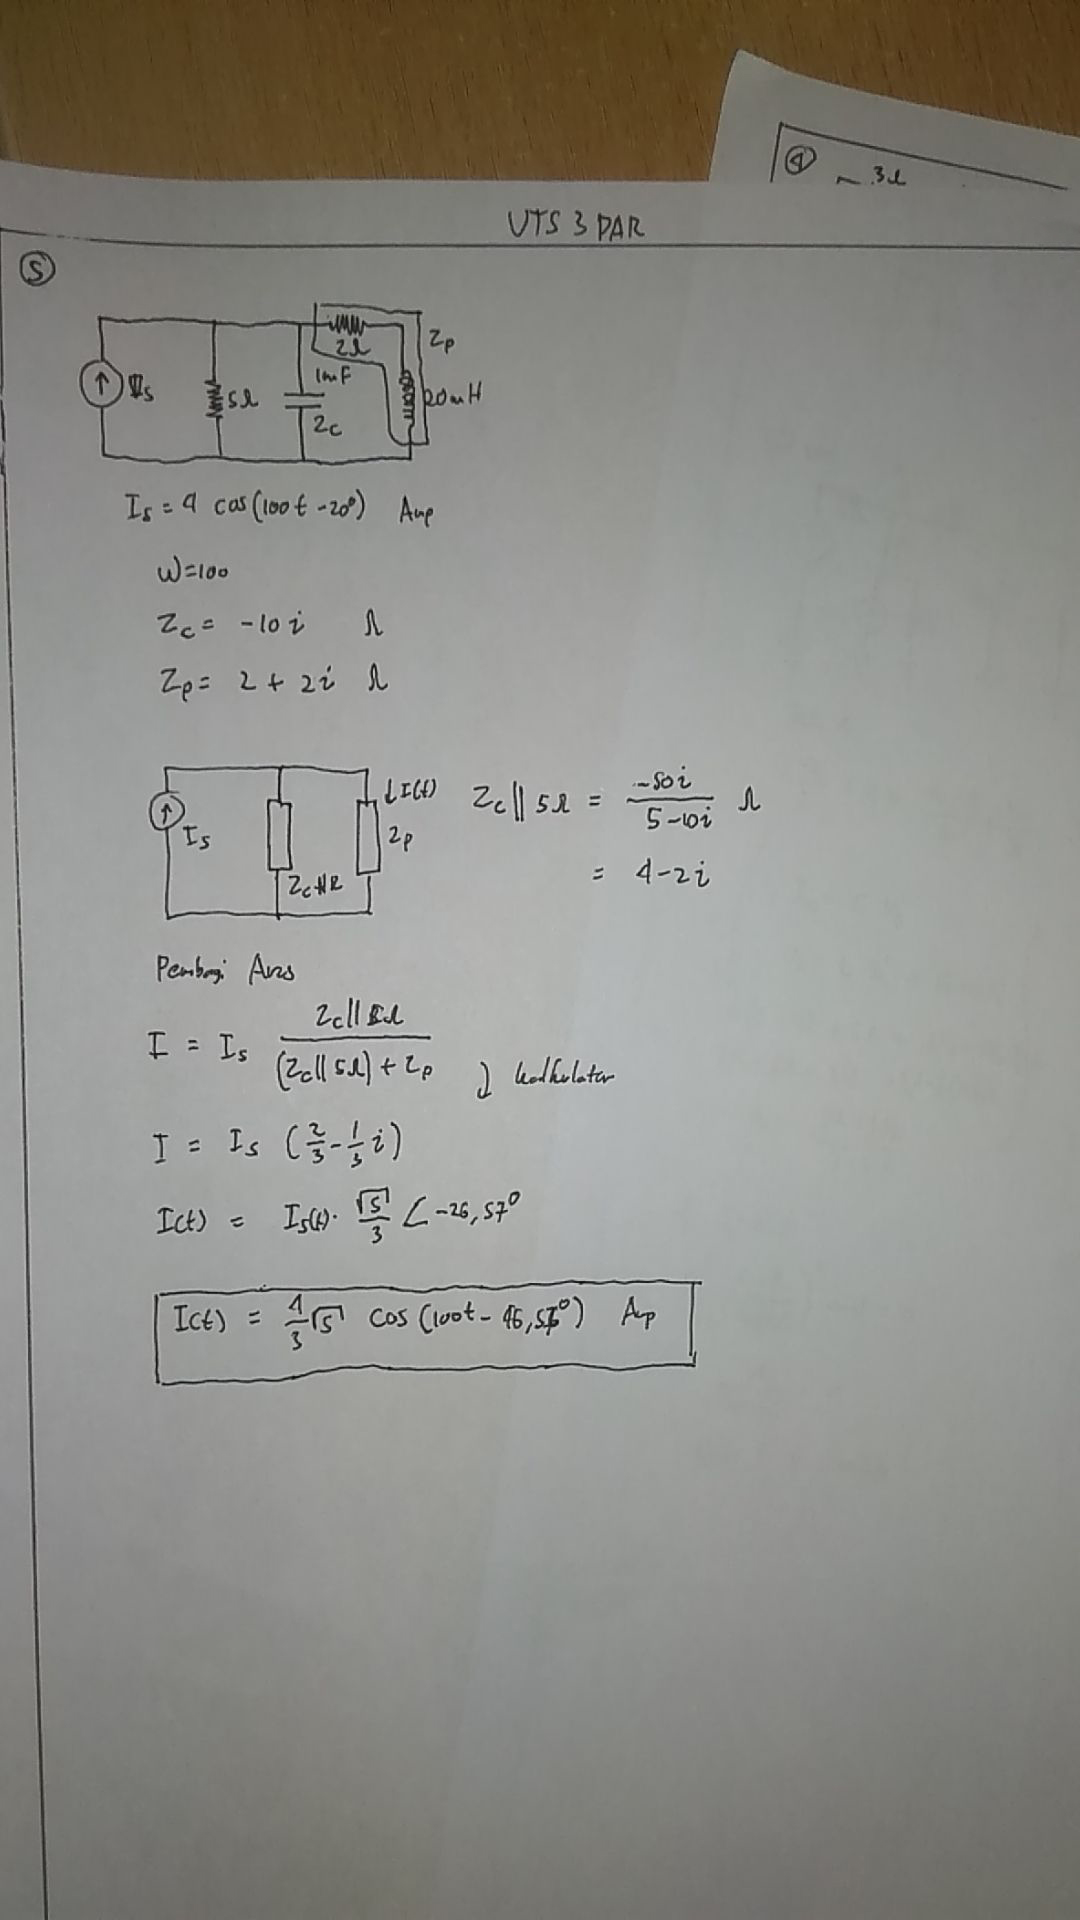 ④ 3Ω
UTS 3 PAR
⑤
2Ω
Zp
Is
5Ω
1mF
20mH
Zc
Is = 4 cos(100t - 20°) Amp
ω=100
Zc = -10i Ω
Zp = 2 + 2i Ω
↓I(t)
Is
Zp
Zc//R
Zc || 5Ω = -50i / 5-10i Ω
= 4-2i
Pembagi Arus
I = Is Zc || 5Ω / (Zc || 5Ω) + Zp
kalkulator
I = Is (2/3 - 1/3 i)
I(t) = Is(t). √5/3 ∠-26,57°
I(t) = 4/3 √5 cos (100t - 46,57°) Amp